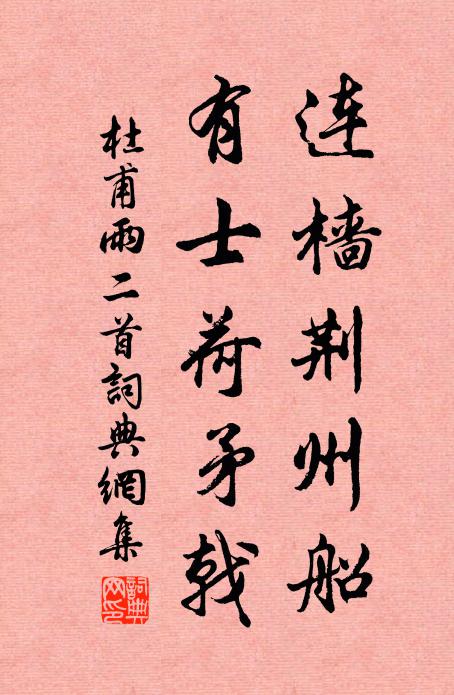 連檣荆州船
有士荷矛戟
杜甫雨二首詞典網集
詞典網印